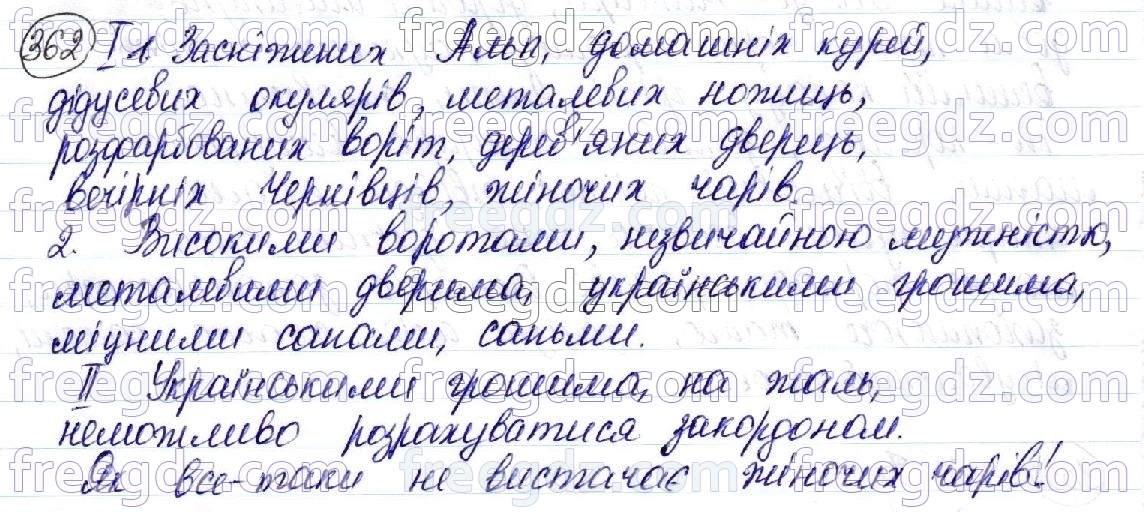 362 I 1. Засніжених Альп, домашніх курей,
дідусевих окулярів, металевих ножиць,
розфарбованих воріт, дерев'яних дверець,
вечірніх Чернівців, жіночих чарів.
2. Високими воротами, незвичайною мужністю,
металевими дверима, українськими грошима,
міцними санами, саньми.
II Українськими грошима, на жаль,
неможливо розрахуватися закордоном.
Як все-таки не вистачає жіночих чарів!
freegdz.com